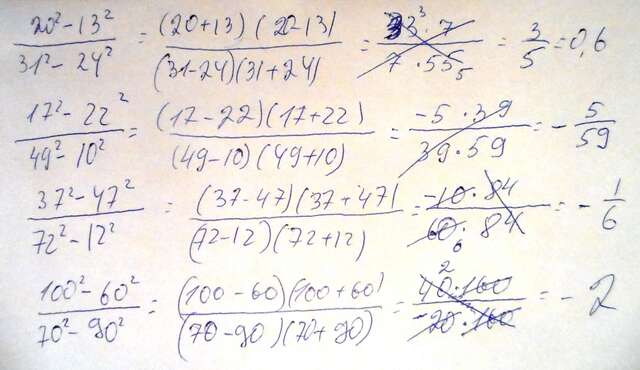 20²-13² / 31²-24² = (20+13)(20-13) / (31-24)(31+24) = 33³·7 / 7·55₅ = 3/5 = 0,6
17²-22² / 49²-10² = (17-22)(17+22) / (49-10)(49+10) = -5·39 / 39·59 = -5/59
37²-47² / 72²-12² = (37-47)(37+47) / (72-12)(72+12) = -10·84 / 60₆·84 = -1/6
100²-60² / 70²-90² = (100-60)(100+60) / (70-90)(70+90) = 40²·160 / -20·160 = -2